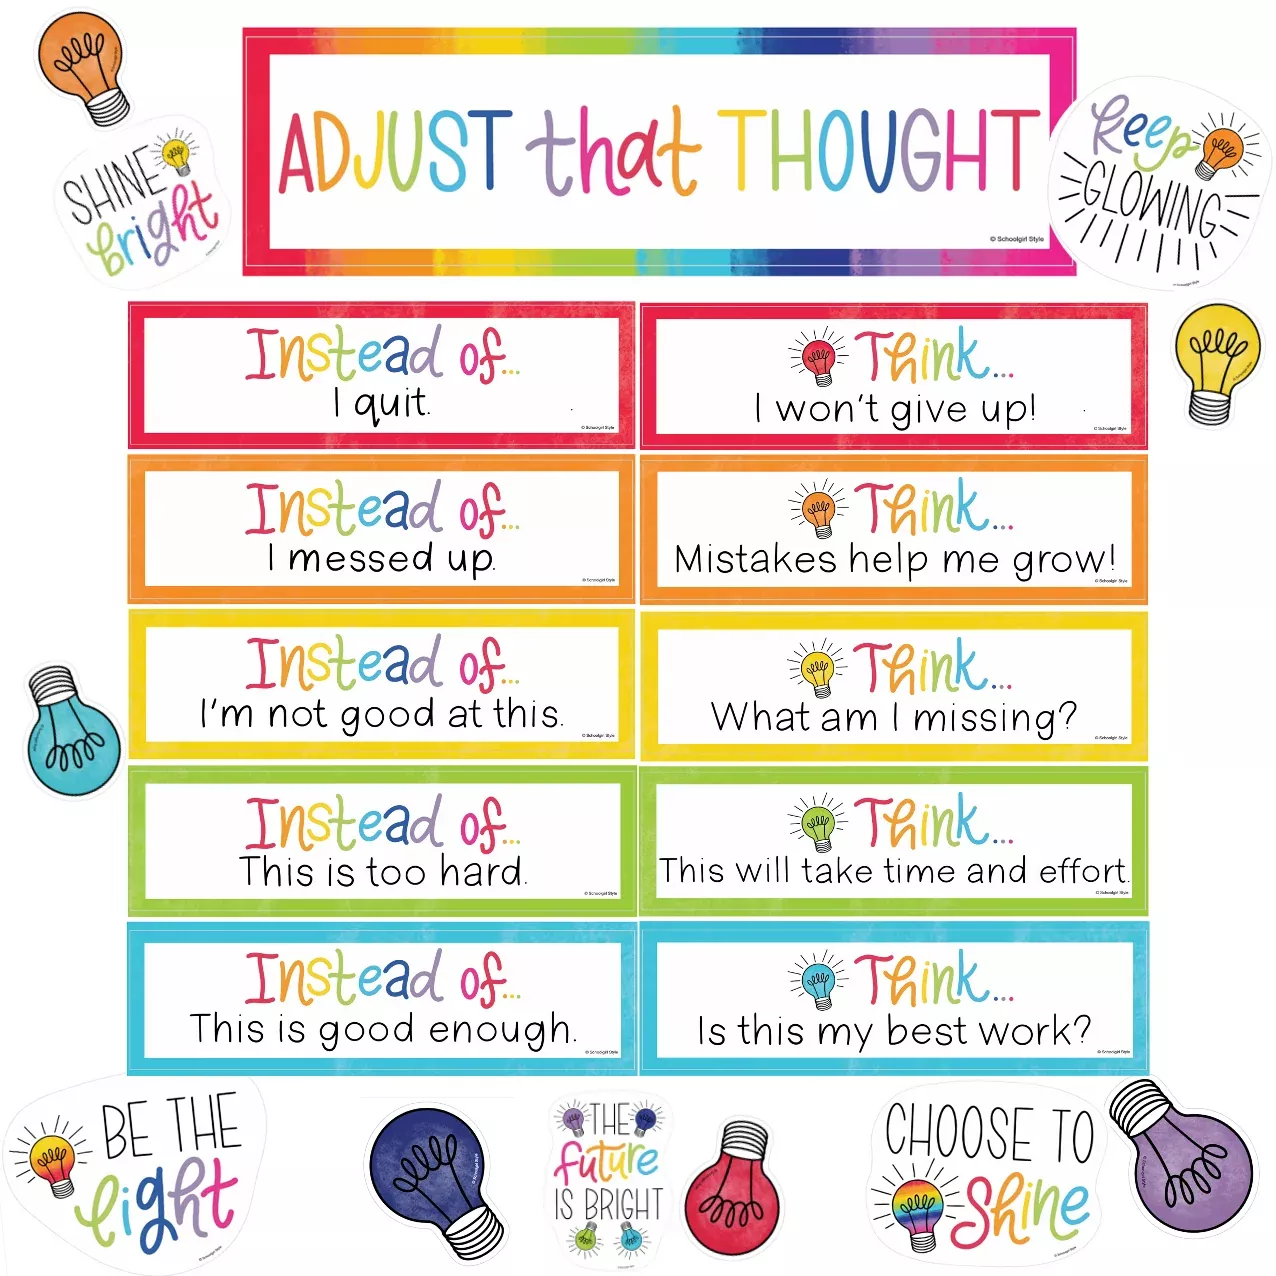 ADJUST that THOUGHT
© Schoolgirl Style
SHINE
bright
keep
GLOWING
© Schoolgirl Style
Instead of...
I quit.
© Schoolgirl Style
Think...
I won't give up!
© Schoolgirl Style
Instead of...
I messed up.
© Schoolgirl Style
Think...
Mistakes help me grow!
© Schoolgirl Style
Instead of...
I'm not good at this.
© Schoolgirl Style
Think...
What am I missing?
© Schoolgirl Style
Instead of...
This is too hard.
© Schoolgirl Style
Think...
This will take time and effort.
© Schoolgirl Style
Instead of...
This is good enough.
© Schoolgirl Style
Think...
Is this my best work?
© Schoolgirl Style
BE THE
light
© Schoolgirl Style
THE
future
IS BRIGHT
CHOOSE TO
Shine
© Schoolgirl Style